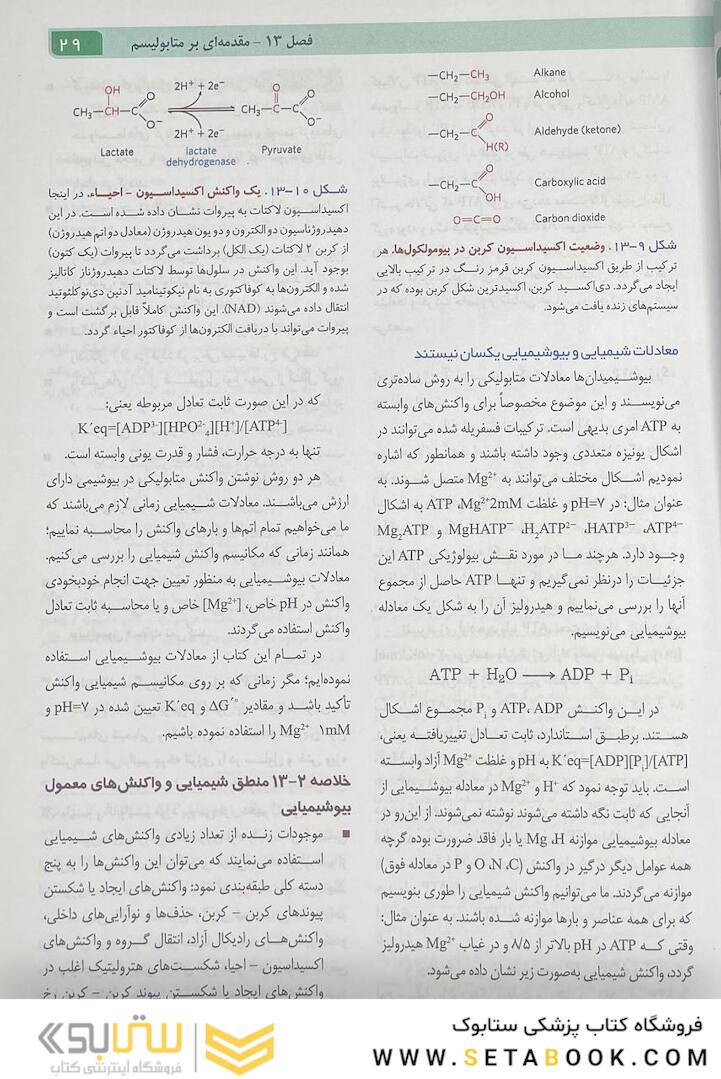 فصل ۱۳ – مقدمه‌ای بر متابولیسم
۲۹
—CH₂—CH₃ Alkane
—CH₂—CH₂OH Alcohol
—CH₂—C
O
H(R)
Aldehyde (ketone)
—CH₂—C
O
OH
Carboxylic acid
O=C=O Carbon dioxide
شکل ۹-۱۳. وضعیت اکسیداسیون کربن در بیومولکول‌ها. هر
ترکیب از طریق اکسیداسیون کربن قرمز رنگ در ترکیب بالایی
ایجاد می‌گردد. دی‌اکسید کربن، اکسیدترین شکل کربن بوده که در
سیستم‌های زنده یافت می‌شود.
معادلات شیمیایی و بیوشیمیایی یکسان نیستند
بیوشیمیدان‌ها معادلات متابولیکی را به روش ساده‌تری
می‌نویسند و این موضوع مخصوصاً برای واکنش‌های وابسته
به ATP امری بدیهی است. ترکیبات فسفریله شده می‌توانند در
اشکال یونیزه متعددی وجود داشته باشند و همانطور که اشاره
نمودیم اشکال مختلف می‌توانند به Mg²⁺ متصل شوند. به
عنوان مثال: در pH=۷ و غلظت ATP ،Mg²⁺ 2mM به اشکال
ATP⁴⁻، HATP³⁻، H₂ATP²⁻، MgHATP⁻ و Mg₂ATP
وجود دارد. هرچند ما در مورد نقش بیولوژیکی ATP این
جزئیات را درنظر نمی‌گیریم و تنها ATP حاصل از مجموع
آنها را بررسی می‌نماییم و هیدرولیز آن را به شکل یک معادله
بیوشیمیایی می‌نویسیم.
ATP + H₂O ⟶ ADP + Pᵢ
در این واکنش ATP، ADP و Pᵢ مجموع اشکال
هستند. برطبق استاندارد، ثابت تعادل تغییریافته یعنی،
K′eq=[ADP][Pᵢ]/[ATP] به pH و غلظت Mg²⁺ آزاد وابسته
است. باید توجه نمود که H⁺ و Mg²⁺ در معادله بیوشیمیایی از
آنجایی که ثابت نگه داشته می‌شوند نوشته نمی‌شوند. از این‌رو در
معادله بیوشیمیایی موازنه Mg ،H یا بار فاقد ضرورت بوده گرچه
همه عوامل دیگر درگیر در واکنش (O ،N ،C و P در معادله فوق)
موازنه می‌گردند. ما می‌توانیم واکنش شیمیایی را طوری بنویسیم
که برای همه عناصر و بارها موازنه شده باشند. به عنوان مثال:
وقتی که ATP در pH بالاتر از ۸/۵ و در غیاب Mg²⁺ هیدرولیز
گردد، واکنش شیمیایی به‌صورت زیر نشان داده می‌شود.
OH
CH₃—CH—C
O
O⁻
2H⁺ + 2e⁻
2H⁺ + 2e⁻
O
CH₃—C—C
O
O⁻
Lactate
lactate
dehydrogenase
Pyruvate
شکل ۱۰-۱۳. یک واکنش اکسیداسیون – احیاء. در اینجا
اکسیداسیون لاکتات به پیروات نشان داده شده است. در این
دهیدروژناسیون دو الکترون و دو یون هیدروژن (معادل دو اتم هیدروژن)
از کربن ۲ لاکتات (یک الکل) برداشت می‌گردد تا پیروات (یک کتون)
بوجود آید. این واکنش در سلول‌ها توسط لاکتات دهیدروژناز کاتالیز
شده و الکترون‌ها به کوفاکتوری به نام نیکوتینامید آدنین دی‌نوکلئوتید
انتقال داده می‌شوند (NAD). این واکنش کاملاً قابل برگشت است و
پیروات می‌تواند با دریافت الکترون‌ها از کوفاکتور احیاء گردد.
که در این صورت ثابت تعادل مربوطه یعنی:
K′eq=[ADP³⁻][HPO²⁻₄][H⁺]/[ATP⁴⁻]
تنها به درجه حرارت، فشار و قدرت یونی وابسته است.
هر دو روش نوشتن واکنش متابولیکی در بیوشیمی دارای
ارزش می‌باشند. معادلات شیمیایی زمانی لازم می‌باشند که
ما می‌خواهیم تمام اتم‌ها و بارهای واکنش را محاسبه نماییم؛
همانند زمانی که مکانیسم واکنش شیمیایی را بررسی می‌کنیم.
معادلات بیوشیمیایی به منظور تعیین جهت انجام خودبخودی
واکنش در pH خاص، [Mg²⁺] خاص و یا محاسبه ثابت تعادل
واکنش استفاده می‌گردند.
در تمام این کتاب از معادلات بیوشیمیایی استفاده
نموده‌ایم؛ مگر زمانی که بر روی مکانیسم شیمیایی واکنش
تأکید باشد و مقادیر ΔG′° و K′eq تعیین شده در pH=۷ و
Mg²⁺ ۱mM را استفاده نموده باشیم.
خلاصه ۲-۱۳ منطق شیمیایی و واکنش‌های معمول
بیوشیمیایی
■ موجودات زنده از تعداد زیادی واکنش‌های شیمیایی
استفاده می‌نمایند که می‌توان این واکنش‌ها را به پنج
دسته کلی طبقه‌بندی نمود: واکنش‌های ایجاد یا شکستن
پیوندهای کربن – کربن، حذف‌ها و نوآرایی‌های داخلی،
واکنش‌های رادیکال آزاد، انتقال گروه و واکنش‌های
اکسیداسیون – احیا، شکست‌های هترولیتیک اغلب در
واکنش‌های ایجاد یا شکستن پیوند کربن – کربن رخ
فروشگاه کتاب پزشکی ستابوک
WWW.SETABOOK.COM
ستابوک
فروشگاه اینترنتی کتاب